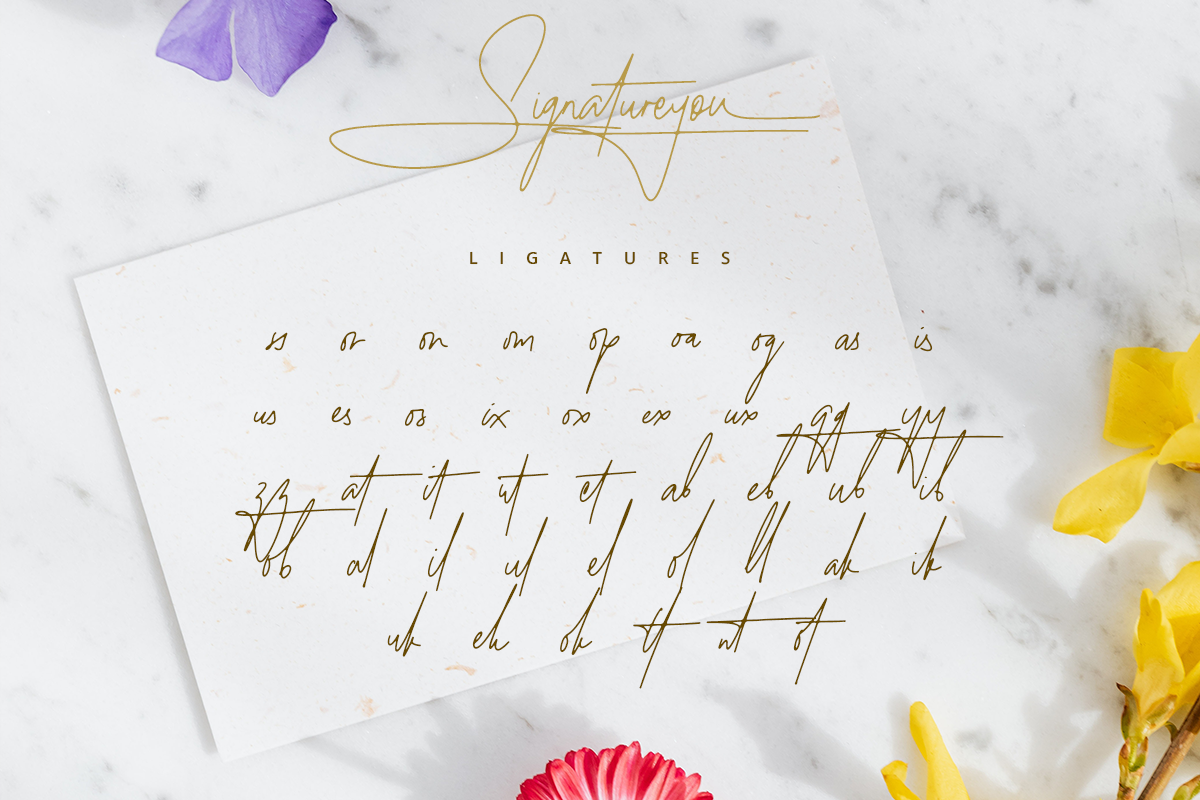 Signatureyou
LIGATURES
ss or on om op oa og as is
us es os ix ox ex ux gg yy
zz at it ut et ab eb ub ib
ob al il ul el ol ll ak ik
uk ek ok tt nt ot